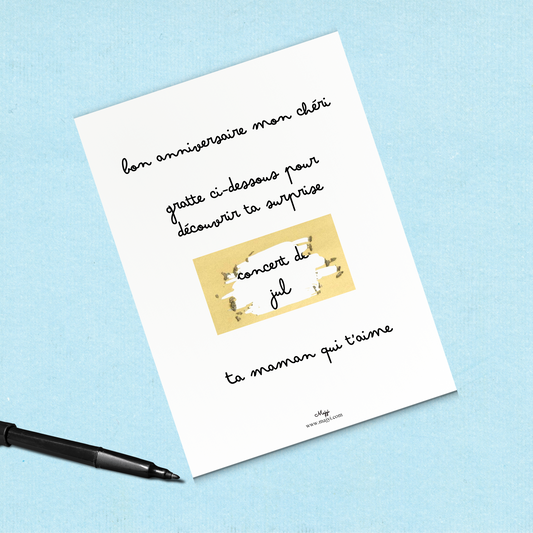 bon anniversaire mon chéri
gratte ci-dessous pour
découvrir ta surprise
concert de
jul
ta maman qui t'aime
www.majyi.com